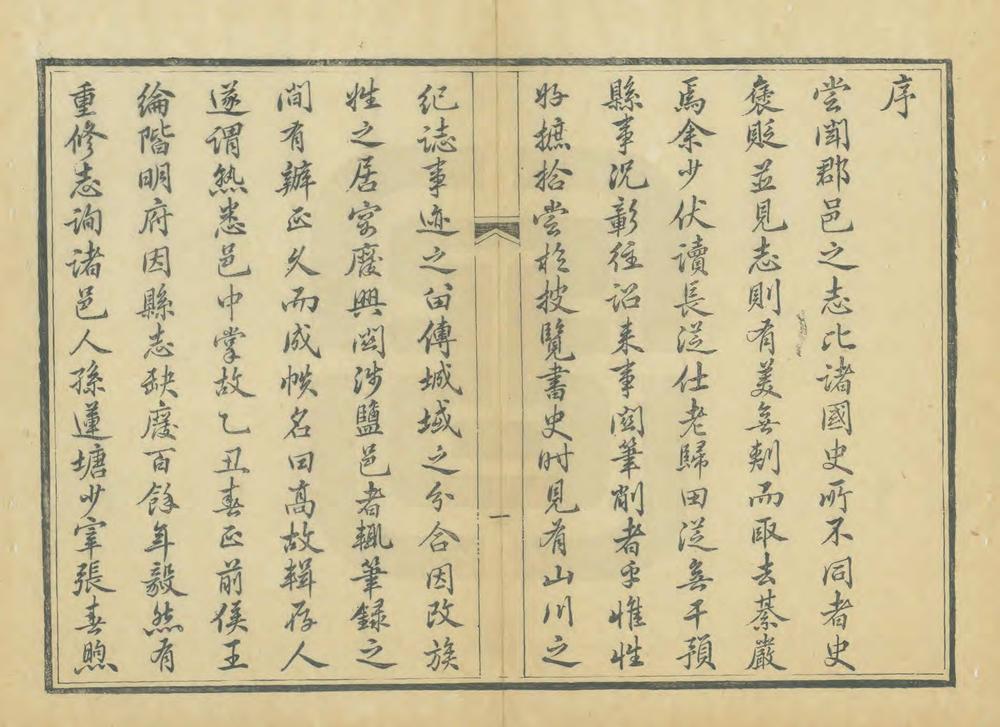 序
嘗聞郡邑之志比諸國史所不同者史
褒貶並見志則有美無刺而取去綦嚴
焉余少伏讀長從仕老歸田從無干預
縣事況彰往詔来事関筆削者乎惟性
好摭拾嘗於披覽書史时見有山川之
紀誌事迹之留傳城域之分合因改族
姓之居家廢興関涉鹽邑者輒筆録之
间有辨正久而成帙名曰高故輯存人
遂谓熟悉邑中掌故乙丑春正前侯王
綸階明府因縣志缺廢百餘年毅然有
重修志詢諸邑人孫蓮塘少宰張春煦
一